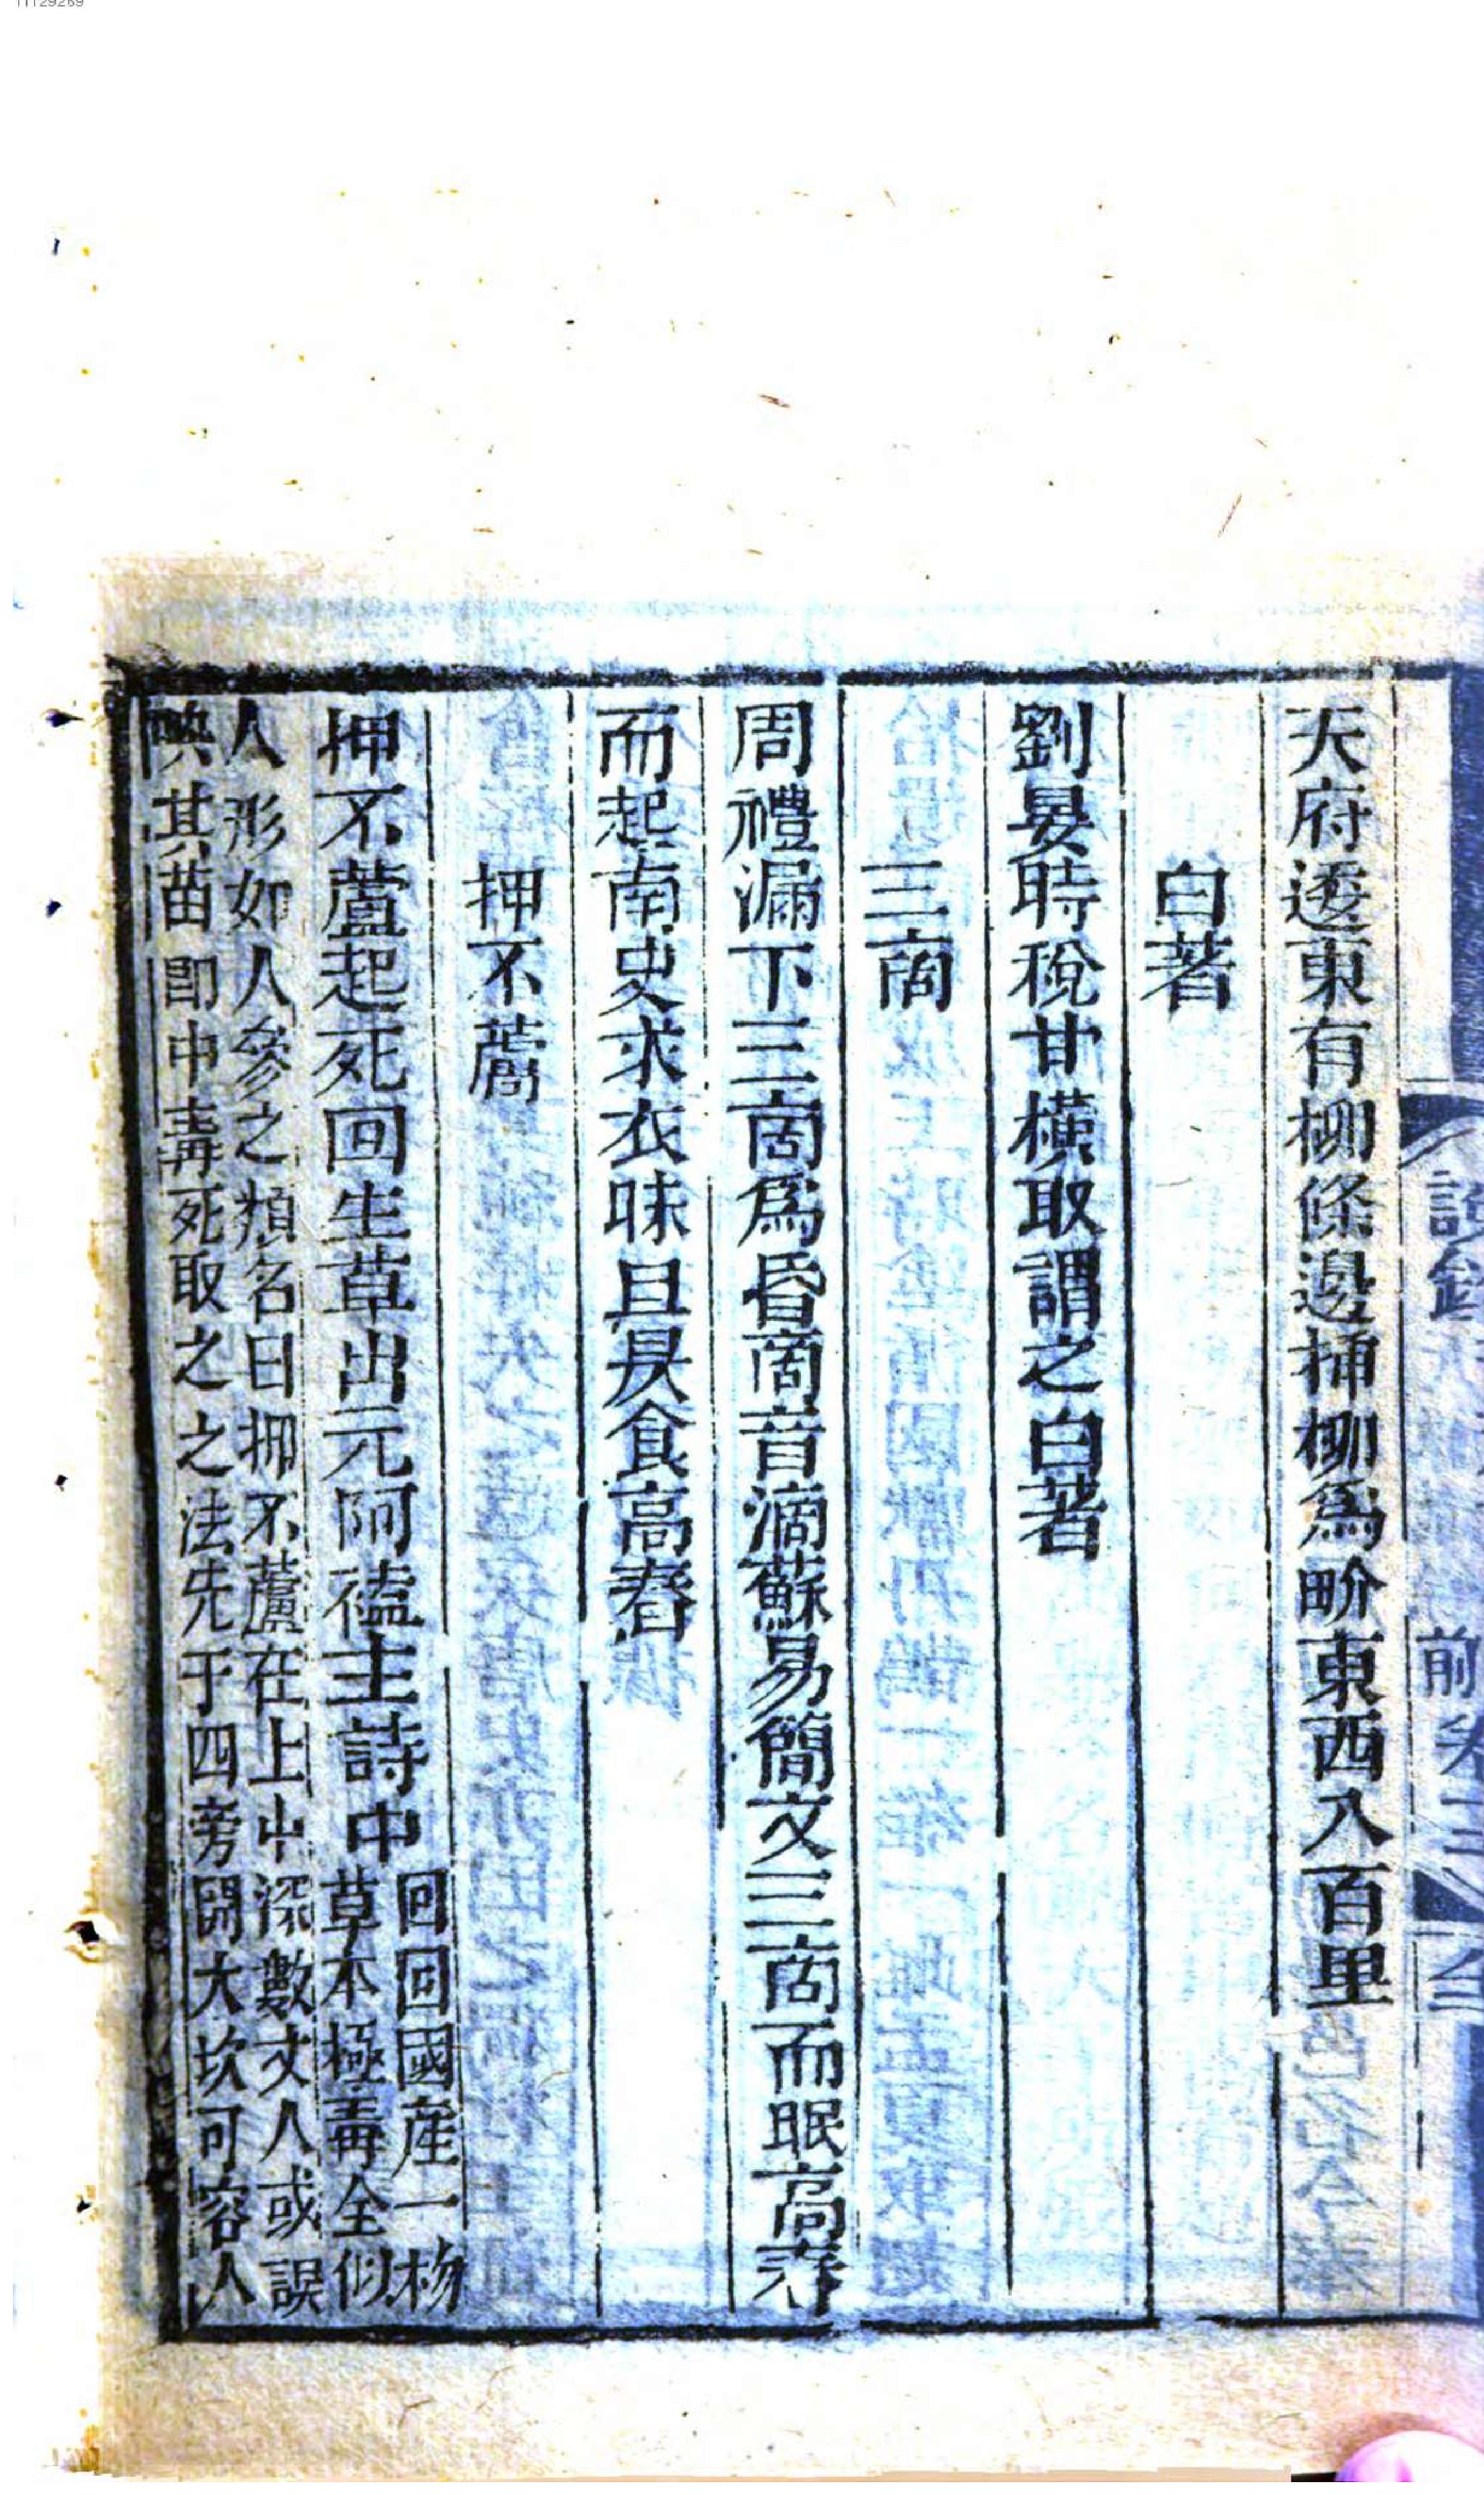 天府遼東有栁條邊揷栁爲畍東西入百里
白著
劉晏時稅甘橫取謂之白著
三啇
周禮漏下三啇爲昏啇音滴蘇易簡文三啇而眠高舂
而起南史求衣昧旦昃食高舂
押不蘆
押不蘆起死回生草出元阿𧝞主詩中
回回國産一物
草本極毒全似
人形如人參之類名曰押不蘆在土中深數丈人或誤
其苗即中毒死取之之法先于四旁開大坎可容人
說鈴
前卷